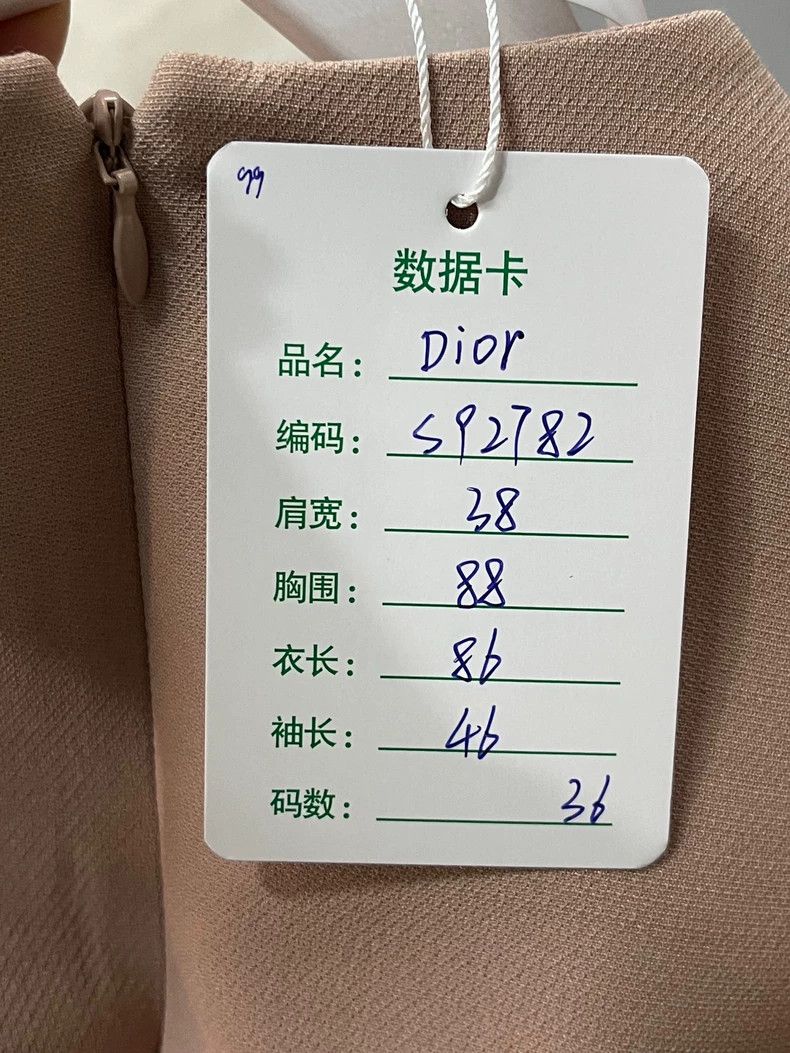 99
数据卡
品名: Dior
编码: S92782
肩宽: 38
胸围: 88
衣长: 86
袖长: 46
码数: 36